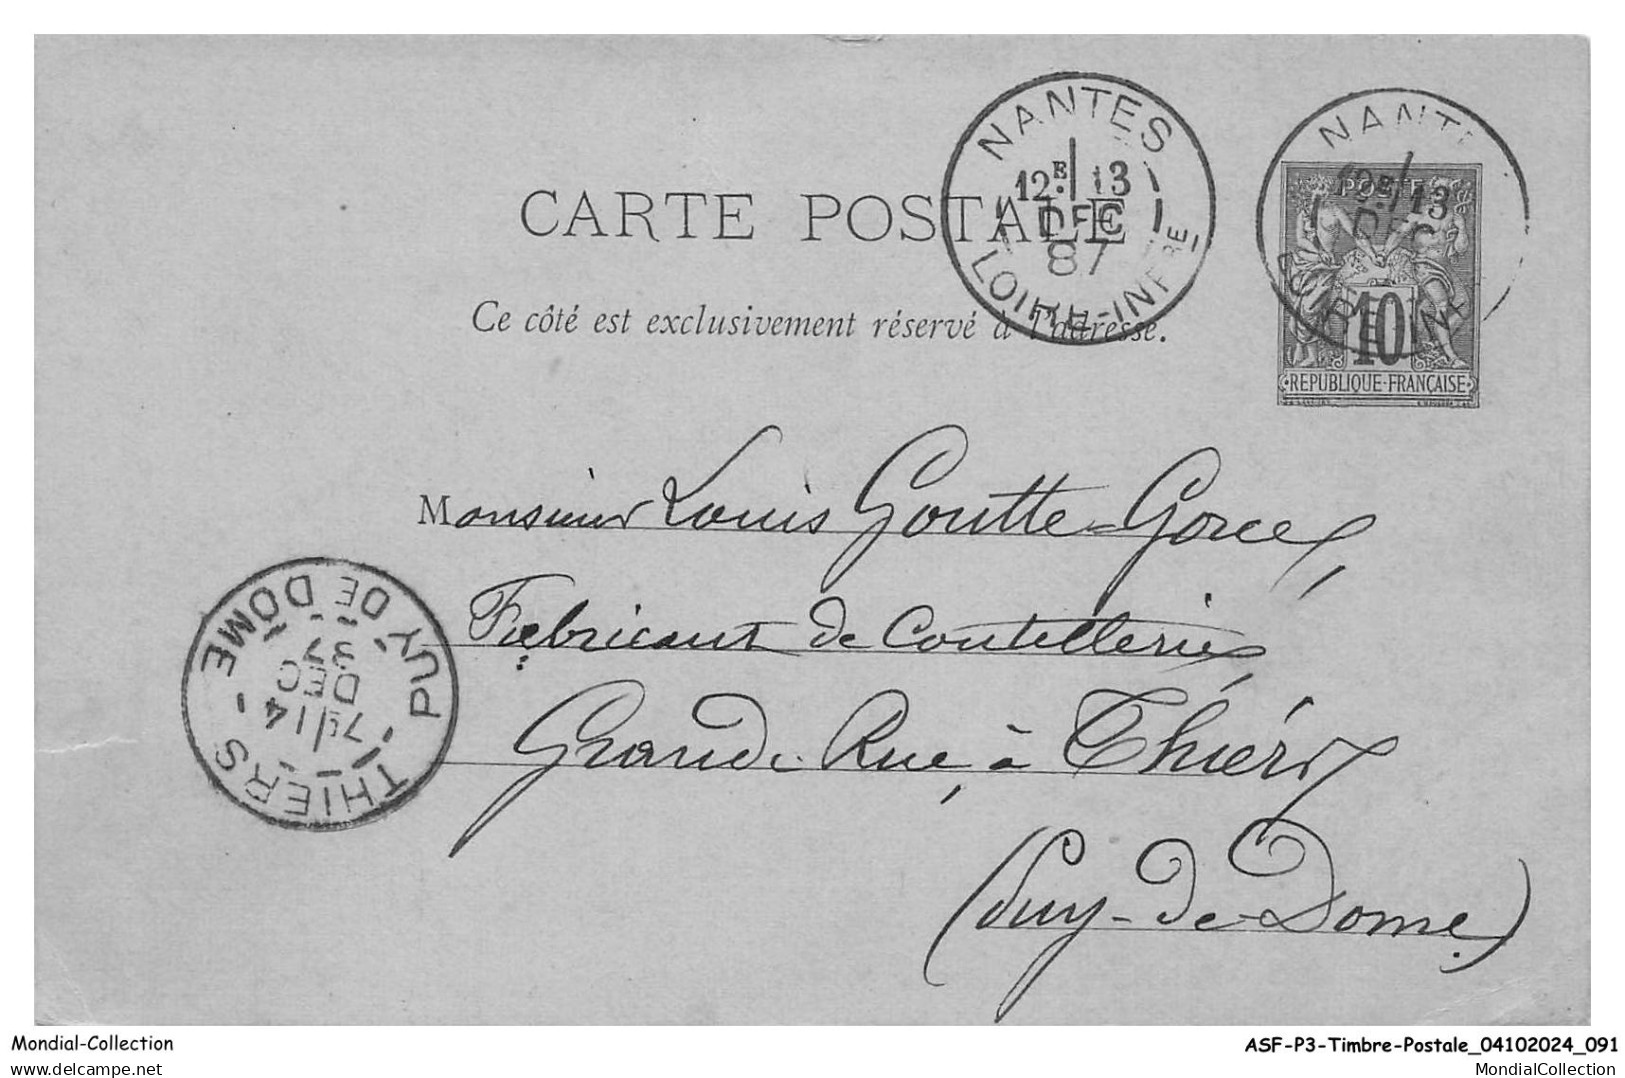 CARTE POSTALE
Ce côté est exclusivement réservé à l'adresse.
NANTES
12E 13
DEC
87
LOIRE-INFRE
NANT
13
DEC
LOIRE-INF
POSTE
10
REPUBLIQUE-FRANÇAISE
Monsieur Louis Goutte-Gorce,
Fabricant de Coutellerie,
Grande Rue, à Thiers
(Puy-de-Dome).
THIERS
7E 14
DEC
87
PUY DE DOME
Mondial-Collection
ASF-P3-Timbre-Postale_04102024_091
MondialCollection